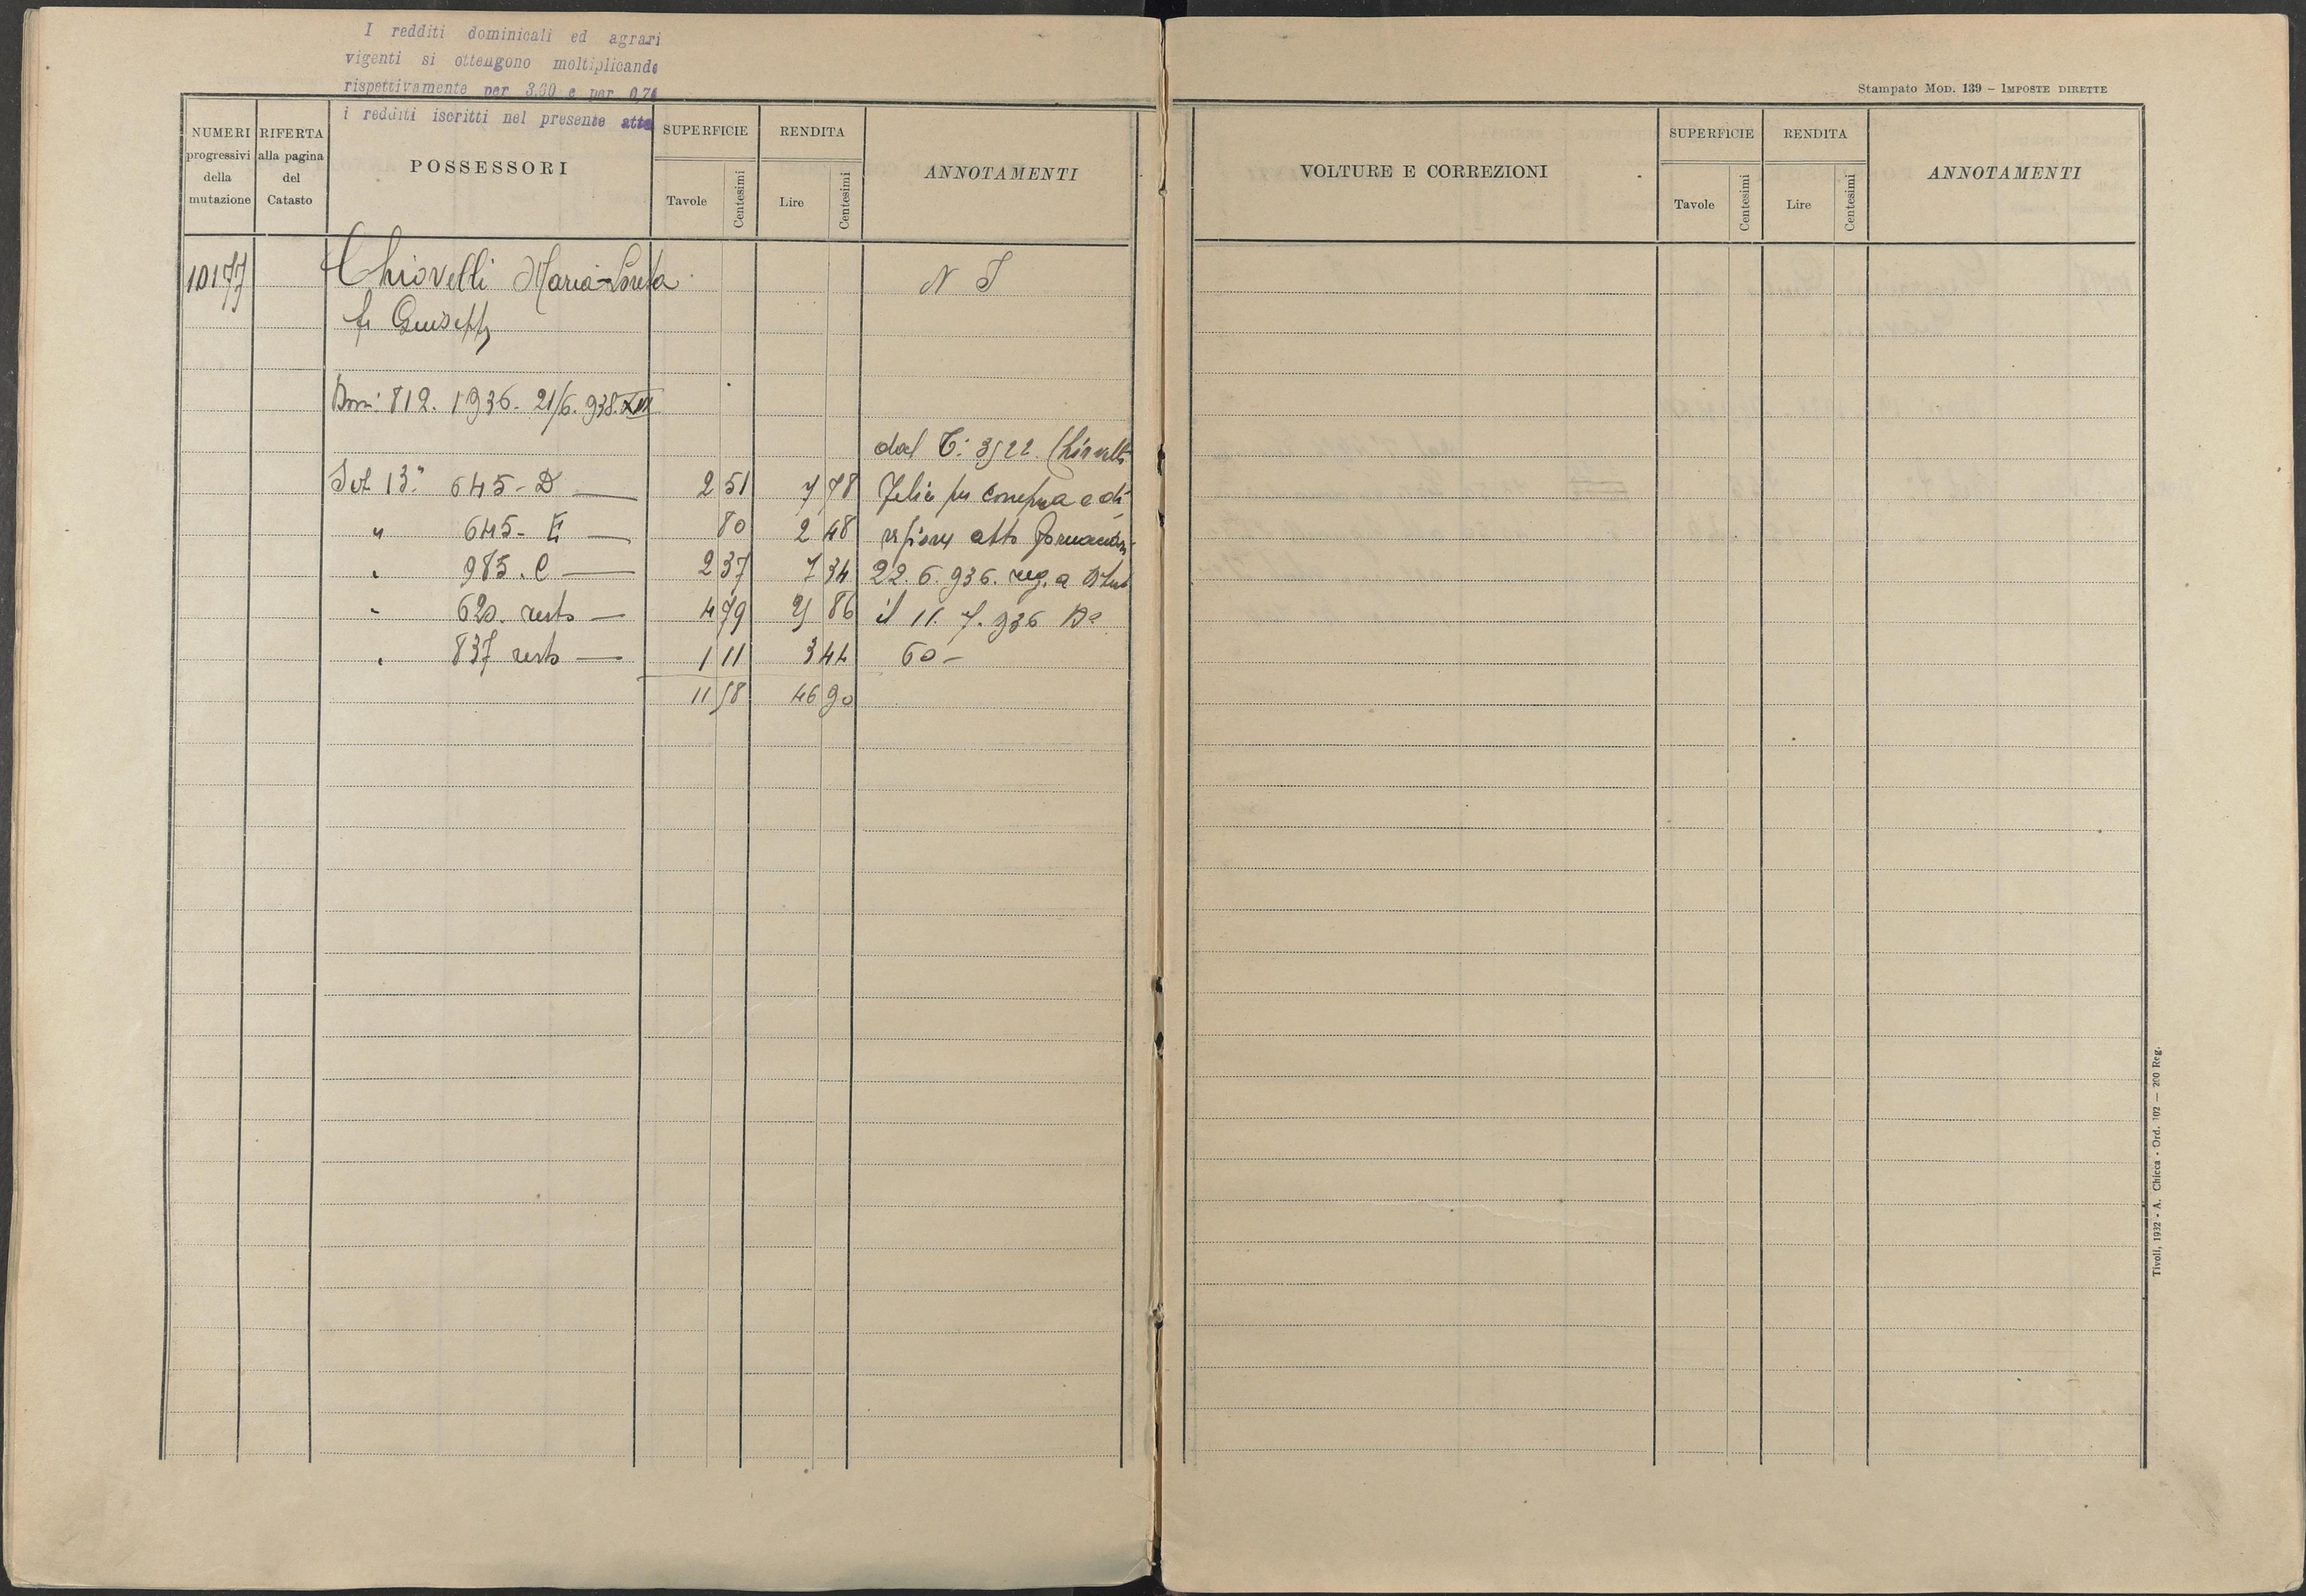 I redditi dominicali ed agrari
vigenti si ottengono moltiplicando
rispettivamente per 3.60 e per 0,74
i redditi iscritti nel presente atto
NUMERI progressivi della mutazione
RIFERTA alla pagina del Catasto
POSSESSORI
SUPERFICIE
Tavole Centesimi
RENDITA
Lire Centesimi
ANNOTAMENTI
10177 Chiovelli Maria-Loreta N I
fu Giuseppe
812. 1936. 21/6. 938. XVI
dal T. 3522 Chiovelli
Set 13ª 645-D — 2 51 7 78 Felice per compra e di
" 645-E — 80 2 48 atto
" 985.C — 2 37 7 34 22.6.936. reg. a
" 620. resto — 4 79 25 86 il 11.7.936
" 837 resto — 1 11 3 44 60-
11 58 46 90
Stampato Mod. 139 – Imposte dirette
VOLTURE E CORREZIONI
SUPERFICIE
Tavole Centesimi
RENDITA
Lire Centesimi
ANNOTAMENTI
Tivoli, 1932 - A. Chicca - Ord. 102 — 200 Reg.